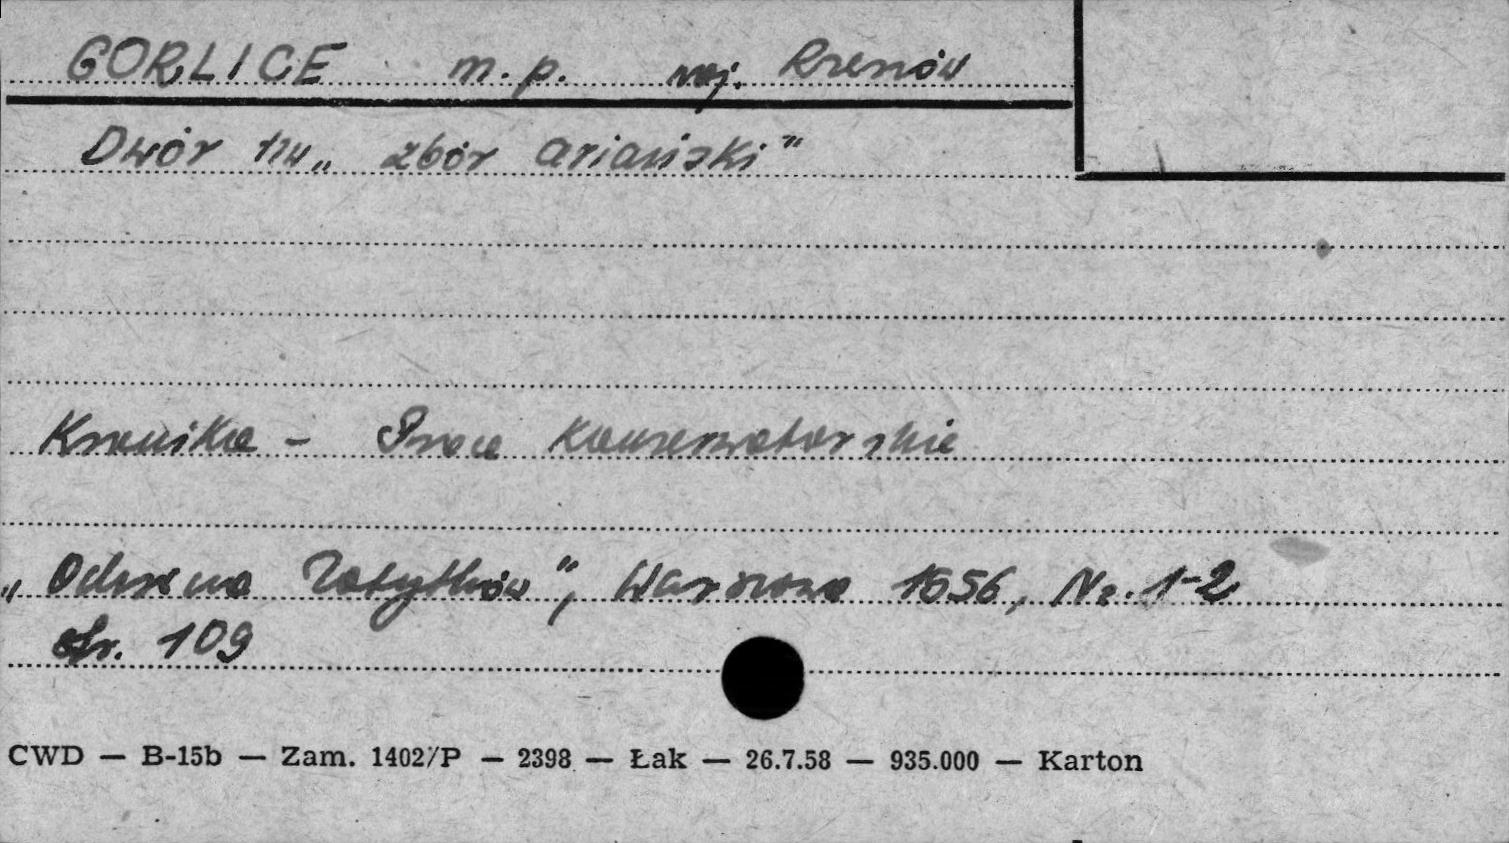 GORLICE m. p. woj. Rzeszów
Dwór zw „ zbór ariański"
Kronika - Prace konserwatorskie
„Ochrona Zabytków", Warszawa 1956, Nr. 1-2
str. 109
CWD — B-15b — Zam. 1402/P — 2398 — Łak — 26.7.58 — 935.000 — Karton